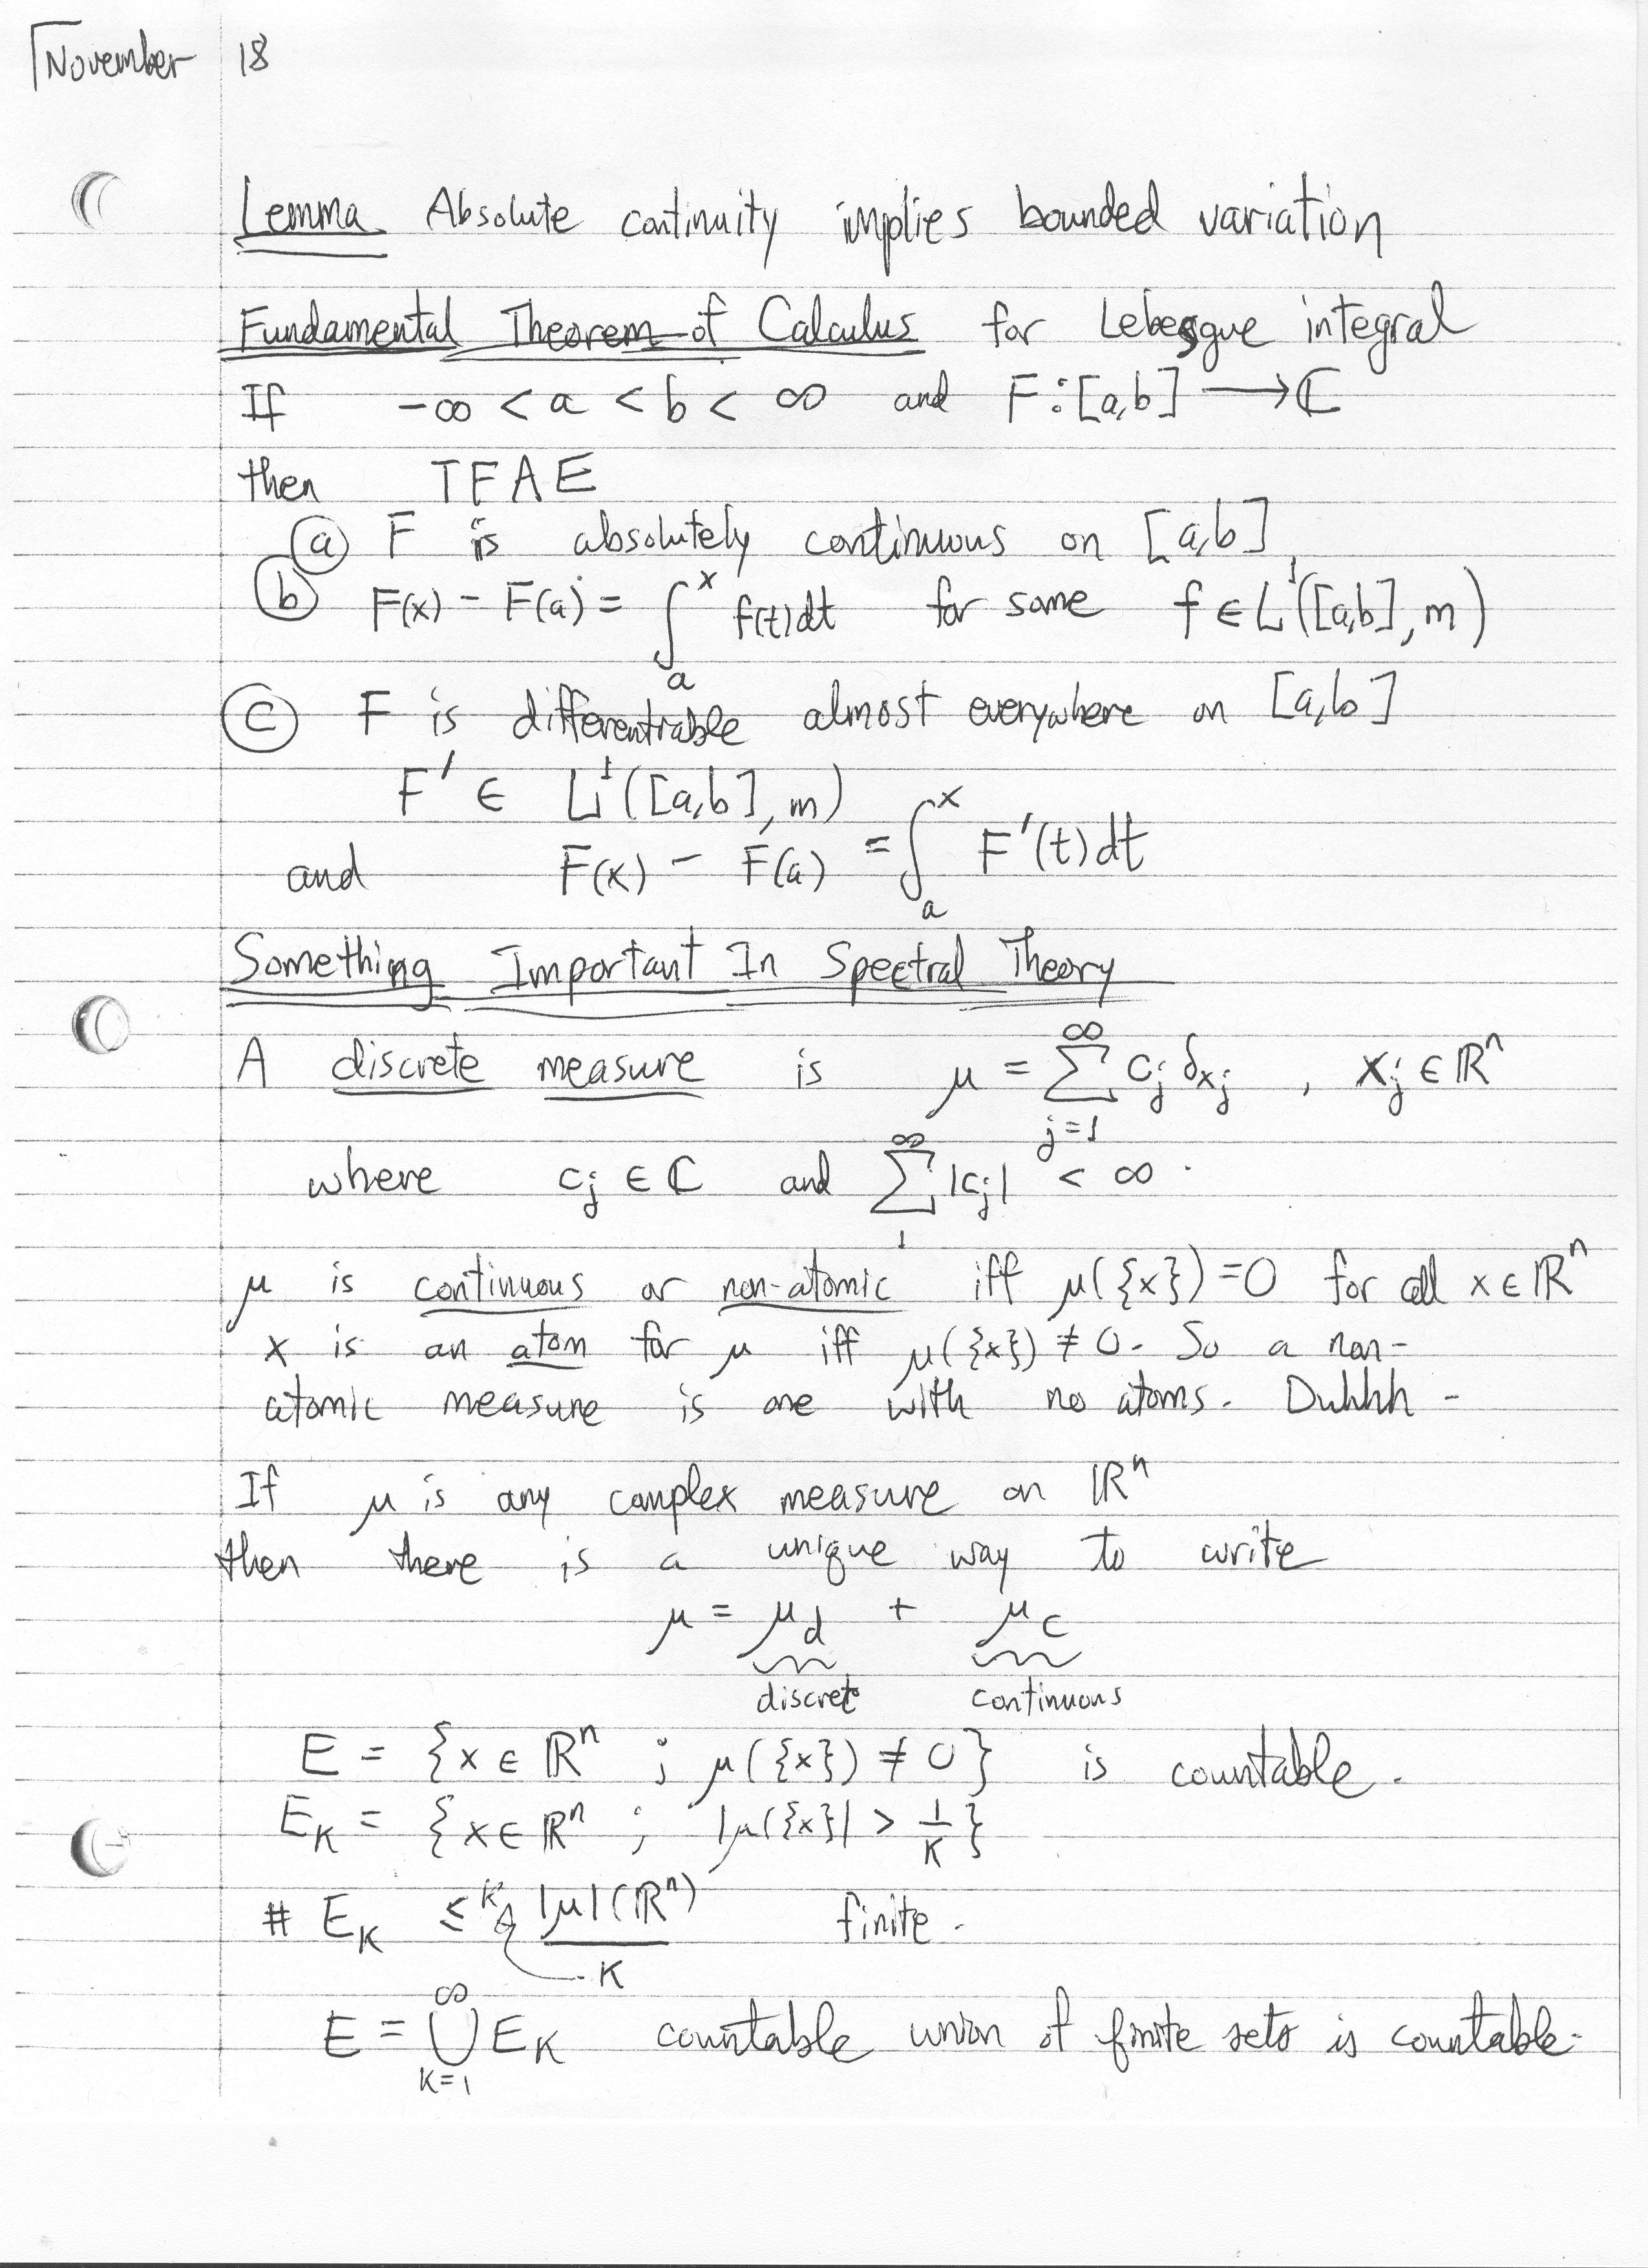 November 18
Lemma Absolute continuity implies bounded variation
Fundamental Theorem of Calculus for Lebesgue integral
If -∞ < a < b < ∞ and F : [a,b] ⟶ ℂ
then TFAE
ⓐ F is absolutely continuous on [a,b]
ⓑ F(x) - F(a) = ∫_a^x f(t)dt for some f ∈ L¹([a,b], m)
ⓒ F is differentiable almost everywhere on [a,b]
F' ∈ L¹([a,b], m)
and F(x) - F(a) = ∫_a^x F'(t)dt
Something Important In Spectral Theory
A discrete measure is μ = ∑_{j=1}^∞ c_j δ_{x_j} , x_j ∈ ℝⁿ
where c_j ∈ ℂ and ∑_1^∞ |c_j| < ∞.
μ is continuous or non-atomic iff μ({x}) = 0 for all x ∈ ℝⁿ
x is an atom for μ iff μ({x}) ≠ 0. So a non-
atomic measure is one with no atoms. Duhhh -
If μ is any complex measure on ℝⁿ
then there is a unique way to write
μ = μ_d + μ_c
discrete continuous
E = {x ∈ ℝⁿ ; μ({x}) ≠ 0} is countable.
E_K = {x ∈ ℝⁿ ; |μ({x}| > 1/K}
# E_K ≤ K |μ|(ℝⁿ) finite.
K
E = ⋃_{K=1}^∞ E_K countable union of finite sets is countable.